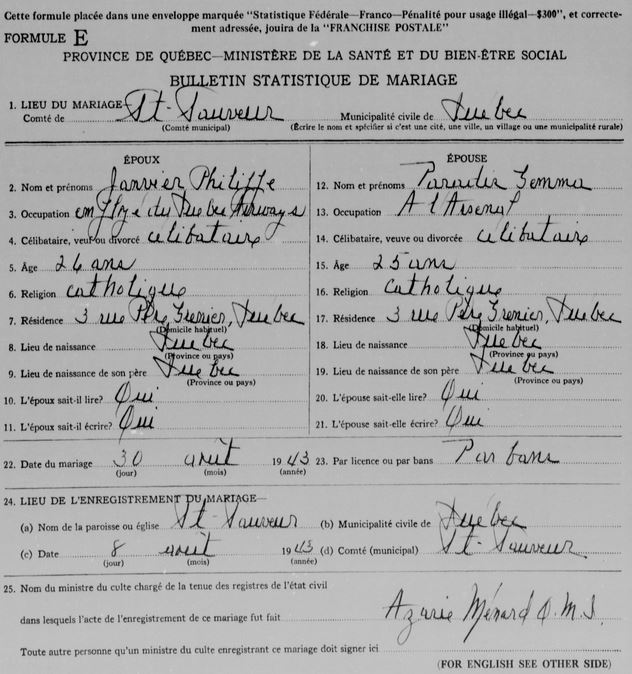 Cette formule placée dans une enveloppe marquée "Statistique Fédérale—Franco—Pénalité pour usage illégal—$300", et correcte-
ment adressée, jouira de la "FRANCHISE POSTALE"
FORMULE E
PROVINCE DE QUÉBEC—MINISTÈRE DE LA SANTÉ ET DU BIEN-ÊTRE SOCIAL
BULLETIN STATISTIQUE DE MARIAGE
1. LIEU DU MARIAGE—
Comté de St-Sauveur Municipalité civile de Quebec
(Comté municipal) (Écrire le nom et spécifier si c'est une cité, une ville, un village ou une municipalité rurale)
ÉPOUX
2. Nom et prénoms Janvier Philippe
3. Occupation employé du Quebec Airways
4. Célibataire, veuf ou divorcé célibataire
5. Âge 26 ans
6. Religion catholique
7. Résidence 3 rue Père Grenier, Quebec
(Domicile habituel)
8. Lieu de naissance Quebec
(Province ou pays)
9. Lieu de naissance de son père Quebec
(Province ou pays)
10. L'époux sait-il lire? Oui
11. L'époux sait-il écrire? Oui
ÉPOUSE
12. Nom et prénoms Paradis Gemma
13. Occupation A l'Arsenal
14. Célibataire, veuve ou divorcée célibataire
15. Âge 25 ans
16. Religion catholique
17. Résidence 3 rue Père Grenier, Quebec
(Domicile habituel)
18. Lieu de naissance Quebec
(Province ou pays)
19. Lieu de naissance de son père Quebec
(Province ou pays)
20. L'épouse sait-elle lire? Oui
21. L'épouse sait-elle écrire? Oui
22. Date du mariage 30 août 1943 23. Par licence ou par bans Par bans
(jour) (mois) (année)
24. LIEU DE L'ENREGISTREMENT DU MARIAGE—
(a) Nom de la paroisse ou église St-Sauveur (b) Municipalité civile de Québec
(c) Date 8 août 1943 (d) Comté (municipal) St-Sauveur
(jour) (mois) (année)
25. Nom du ministre du culte chargé de la tenue des registres de l'état civil
dans lesquels l'acte de l'enregistrement de ce mariage fut fait Azarie Ménard O.M.I.
Toute autre personne qu'un ministre du culte enregistrant ce mariage doit signer ici
(FOR ENGLISH SEE OTHER SIDE)